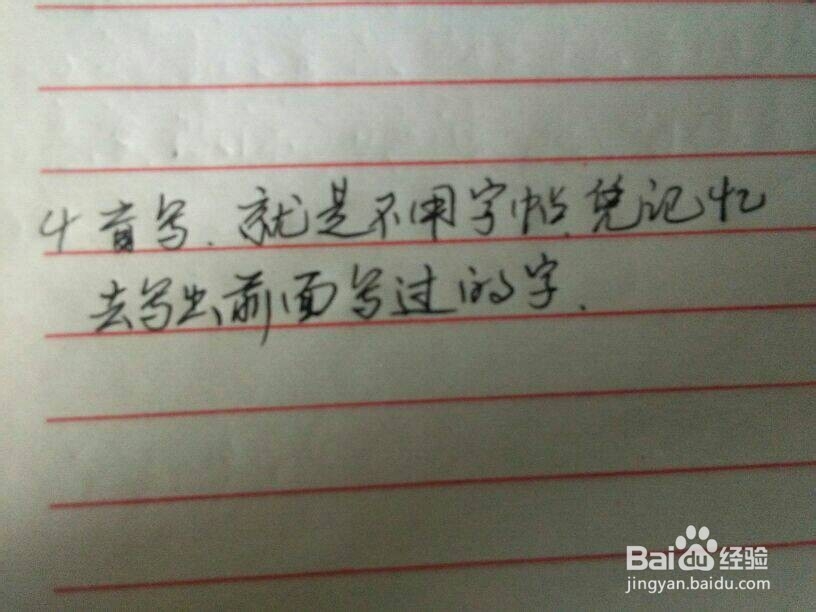 4 盲写.就是不用字帖.凭记忆
去写出前面写过的字.
Baidu经验
jingyan.baidu.com